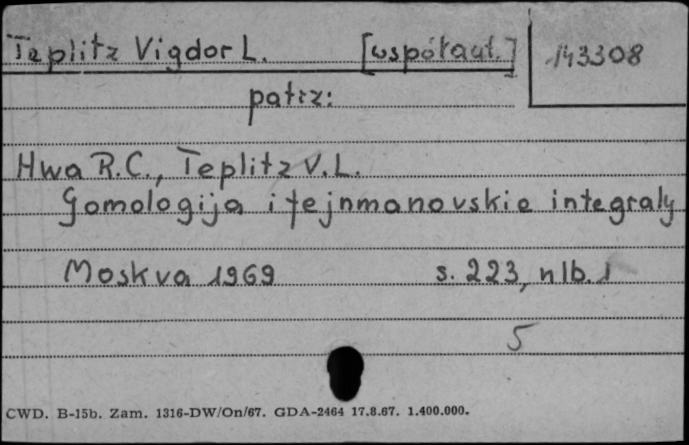 Teplitz Vigdor L. [współaut.] 143308
patrz:
Hwa R.C., Teplitz V.L.
Gomologija i fejnmanovskie integraly
Moskva 1969 s. 223, nlb. 1
5
CWD. B-15b. Zam. 1316-DW/On/67. GDA-2464 17.8.67. 1.400.000.